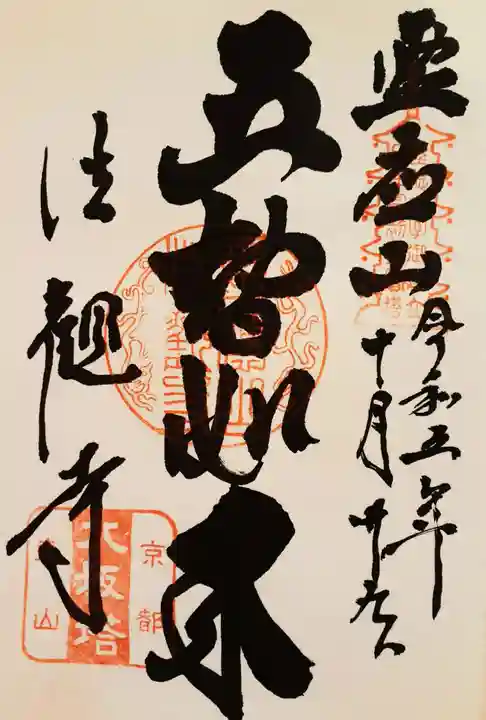 霊応山
令和五年
十月廿六日
五智如来
法観寺
京都
八坂塔
東山